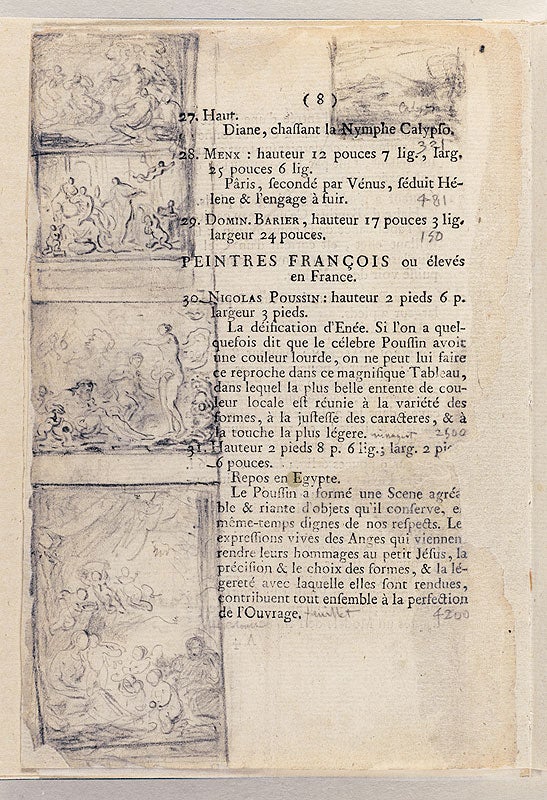 ( 8 )
27. Haut.
Diane, chaſſant la Nymphe Calypſo.
331
28. MENX : hauteur 12 pouces 7 lig., larg.
25 pouces 6 lig.
Pâris, ſecondé par Vénus, ſéduit Hé-
lene & l'engage à fuir. 481
29. DOMIN. BARIER, hauteur 17 pouces 3 lig.
largeur 24 pouces. 150
PEINTRES FRANÇOIS ou élevés
en France.
30. NICOLAS POUSSIN : hauteur 2 pieds 6 p.
largeur 3 pieds.
La déification d'Enée. Si l'on a quel-
quefois dit que le célebre Pouſſin avoit
une couleur lourde, on ne peut lui faire
ce reproche dans ce magnifique Tableau,
dans lequel la plus belle entente de cou-
leur locale eſt réunie à la variété des
formes, à la juſteſſe des caracteres, & à
la touche la plus légere. 2500
31. Hauteur 2 pieds 8 p. 6 lig.; larg. 2 pi
6 pouces.
Repos en Egypte.
Le Pouſſin a formé une Scene agréa
ble & riante d'objets qu'il conſerve, e
même-temps dignes de nos reſpects. Le
expreſſions vives des Anges qui viennen
rendre leurs hommages au petit Jéſus, la
préciſion & le choix des formes, & la lé-
gereté avec laquelle elles ſont rendues,
contribuent tout enſemble à la perfection
de l'Ouvrage. feuillet 4200